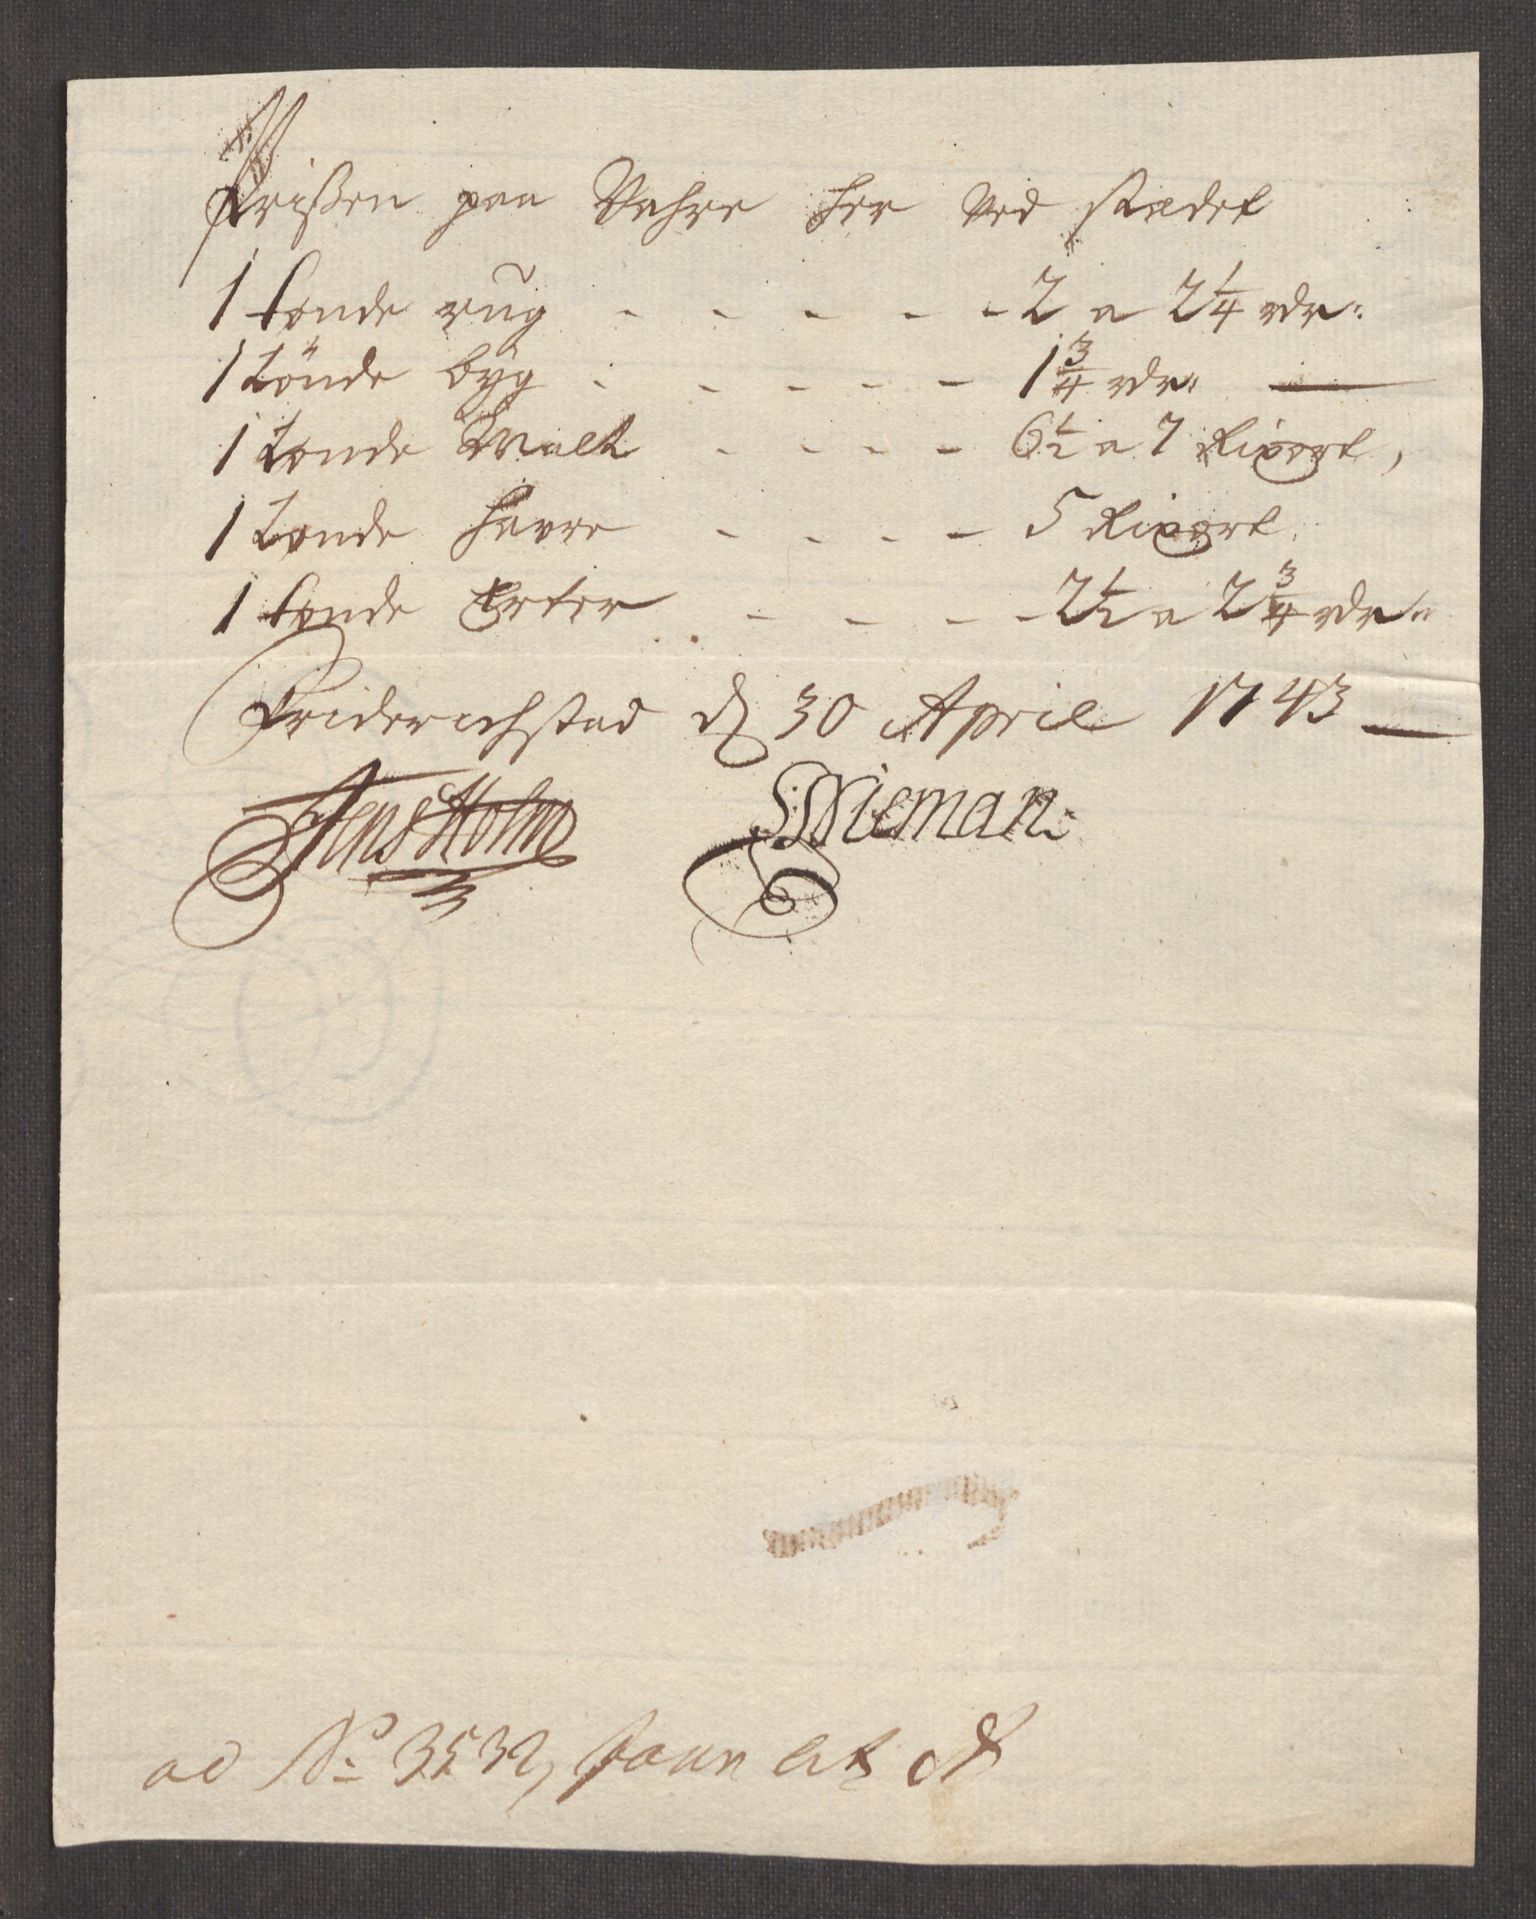 Prißen paa Vahre her ved stædet
1 tonde rug - - - - - 2 a 2 1/4 rdr:
1 tönde byg - - - - - 1 3/4 rdr: —
1 tonde Malt - - - - 6 1/2 a 7 Rixort,
1 tonde havre - - - - 5 Rixort,
1 tonde Erter - - - - 2 1/2 a 2 3/4 rdr:
Friderichstad d 30 April 1743 —
Jens Holm
Nieman:
ad No: 3532,